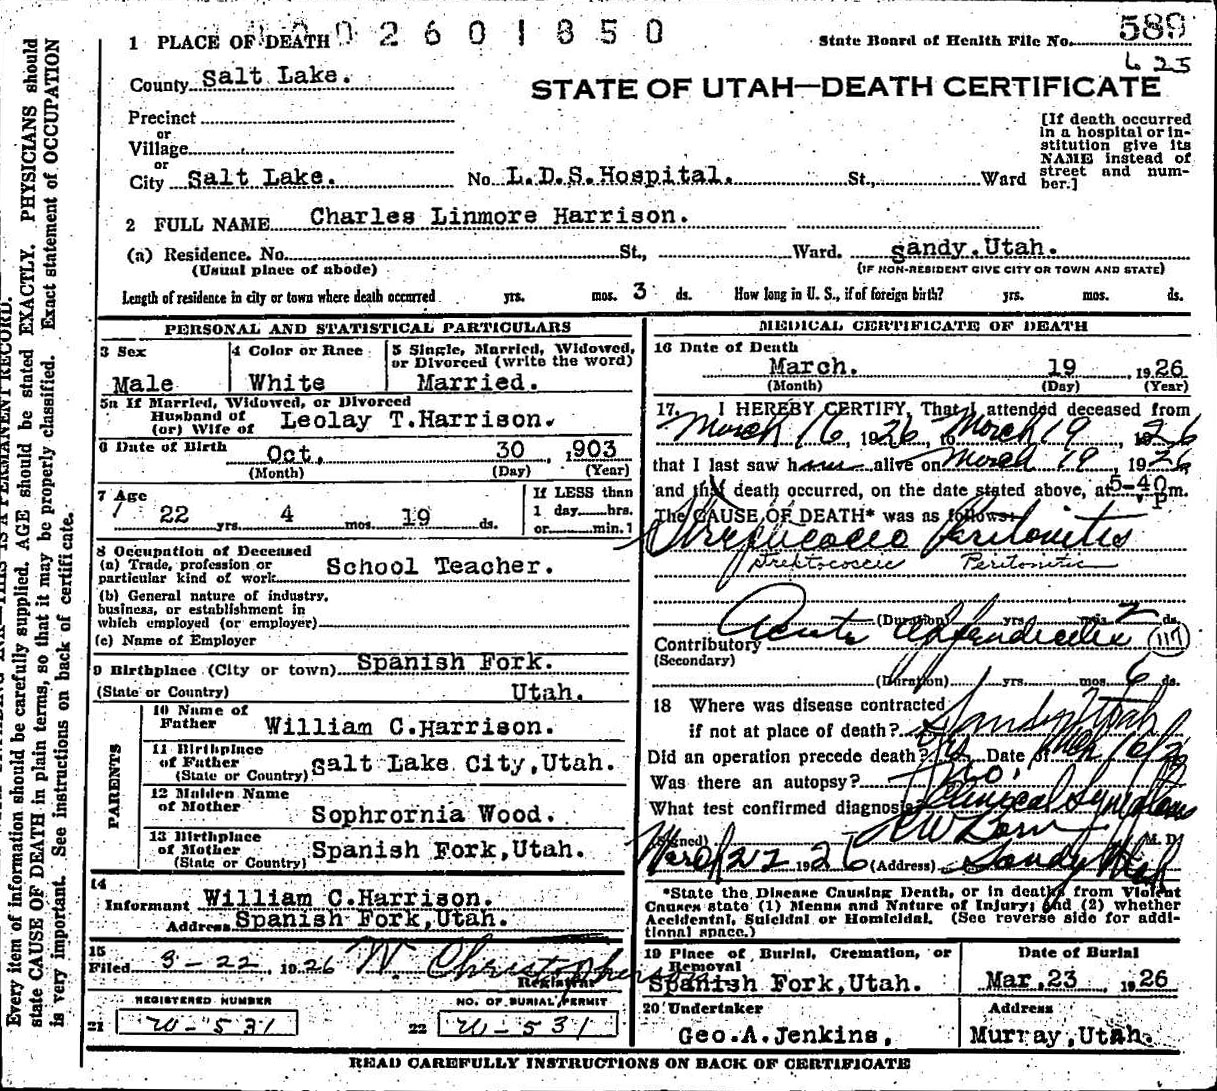 1 PLACE OF DEATH 002601850
State Board of Health File No. 589
625
County Salt Lake.
STATE OF UTAH—DEATH CERTIFICATE
Precinct
or
Village
or
City Salt Lake. No. L.D.S.Hospital. St., Ward
[If death occurred
in a hospital or in-
stitution give its
NAME instead of
street and num-
ber.]
2 FULL NAME Charles Linmore Harrison.
(a) Residence. No. St., Ward. Sandy.Utah.
(Usual place of abode) (IF NON-RESIDENT GIVE CITY OR TOWN AND STATE)
Length of residence in city or town where death occurred yrs. mos. 3 ds. How long in U. S., if of foreign birth? yrs. mos. ds.
PERSONAL AND STATISTICAL PARTICULARS
3 Sex
Male
4 Color or Race
White
5 Single, Married, Widowed,
or Divorced (write the word)
Married.
5a If Married, Widowed, or Divorced
Husband of
(or) Wife of Leolay T.Harrison.
6 Date of Birth Oct. 30 , 1903
(Month) (Day) (Year)
7 Age
22 yrs. 4 mos. 19 ds.
If LESS than
1 day hrs.
or min.?
8 Occupation of Deceased
(a) Trade, profession or
particular kind of work School Teacher.
(b) General nature of industry,
business, or establishment in
which employed (or employer)
(c) Name of Employer
9 Birthplace (City or town) Spanish Fork.
(State or Country) Utah.
PARENTS
10 Name of
Father William C.Harrison.
11 Birthplace
of Father
(State or Country) Salt Lake City,Utah.
12 Maiden Name
of Mother Sophrornia Wood.
13 Birthplace
of Mother
(State or Country) Spanish Fork,Utah.
14
Informant William C.Harrison.
Address Spanish Fork,Utah.
15
Filed 3-22, 1926 W. Christopherson
Registrar
REGISTERED NUMBER
21 W-531
NO. OF BURIAL PERMIT
22 W-531
MEDICAL CERTIFICATE OF DEATH
16 Date of Death
March. 19 , 1926
(Month) (Day) (Year)
17. I HEREBY CERTIFY, That I attended deceased from
March 16, 1926, to March 19, 1926
that I last saw him alive on March 19, 1926
and that death occurred, on the date stated above, at 5-40 P m.
The CAUSE OF DEATH* was as follows:
Streptococcic Peritonitis
Streptococcic Peritonitis
(Duration) yrs mos 2 ds.
Contributory Acute Appendicitis 117
(Secondary)
(Duration) yrs. mos. 6 ds.
18 Where was disease contracted
if not at place of death? Sandy Utah
Did an operation precede death? Yes Date of Mch 16/26
Was there an autopsy? No.
What test confirmed diagnosis Clinical Symptoms
(Signed) M. D.
March 22 1926 (Address) Sandy Utah
*State the Disease Causing Death, or in deaths from Violent
Causes state (1) Means and Nature of Injury; and (2) whether
Accidental, Suicidal or Homicidal. (See reverse side for addi-
tional space.)
19 Place of Burial, Cremation, or
Removal
Spanish Fork,Utah.
Date of Burial
Mar,23 , 1926
20 Undertaker
Geo.A.Jenkins,
Address
Murray,Utah.
READ CAREFULLY INSTRUCTIONS ON BACK OF CERTIFICATE
THIS IS A PERMANENT RECORD.
Every item of information should be carefully supplied. AGE should be stated EXACTLY. PHYSICIANS should
state CAUSE OF DEATH in plain terms, so that it may be properly classified. Exact statement of OCCUPATION
is very important. See instructions on back of certificate.